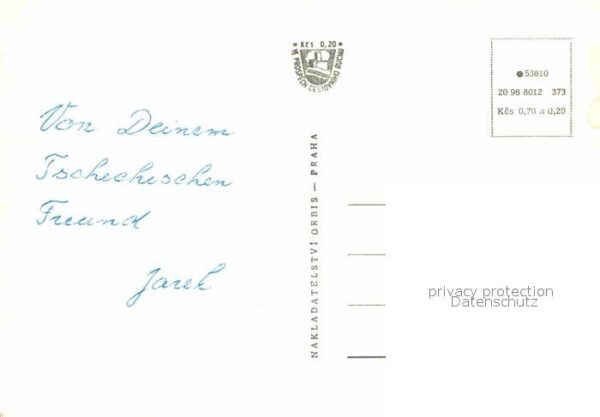 Kčs 0,20
VE PROSPĚCH CESTOVNÍHO RUCHU
53610
20 96 8012 373
Kčs 0,70 a 0,20
Von Deinem
Tschechischen
Freund
Jarek
NAKLADATELSTVÍ ORBIS — PRAHA
privacy protection
Datenschutz